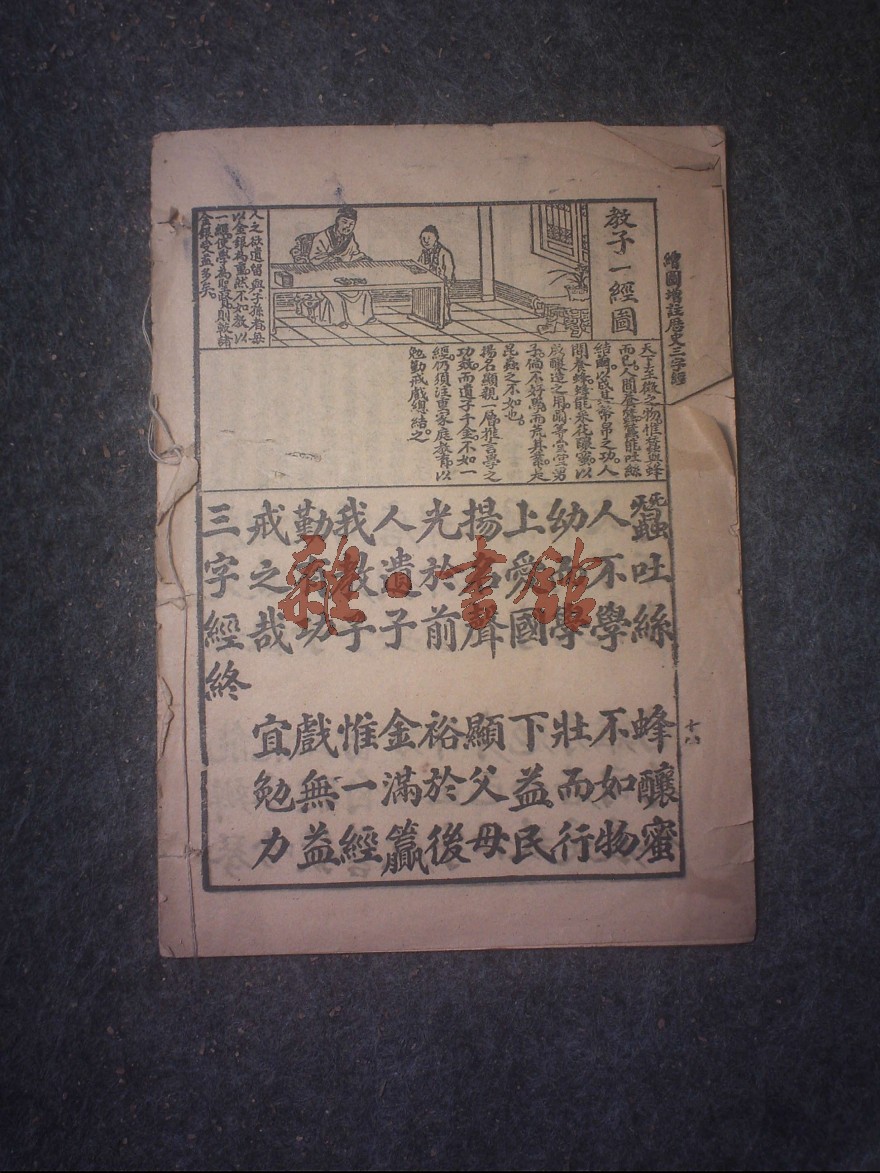 繪圖增註歷史三字經
十八
教子一經圖
人之欲遺留與子孫者每
以金銀為重然不如教以
一經使學為聖賢則較諸
金銀受益多矣
天下至微之物惟蠶與蜂
而已人間養蠶蠶能吐絲
結繭以成其幣帛之功人
間養蜂蜂能采花釀蜜以
啟釀造之用爾等堂堂男
子倘不好學而荒其業夫
昆蟲之不如也
揚名顯親一層推言學之
功效而遺子千金不如一
經仍須注重家庭教育以
勉勤戒戲總結之
蠶吐絲 蜂釀蜜
人不學 不如物
幼而學 壯而行
上愛國 下益民
揚名聲 顯父母
光於前 裕於後
人遺子 金滿籯
我教子 惟一經
勤有功 戲無益
戒之哉 宜勉力
三字經終
雜·書館